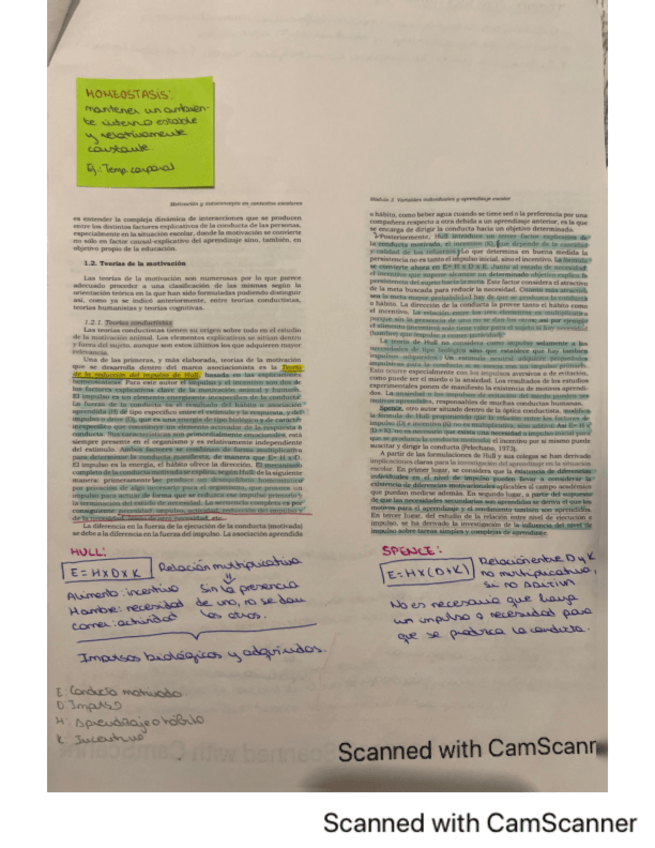 HOMEOSTASIS:
mantener un ambien-
te interno estable
y relativamente
constante.
Ej: Temp. corporal
Motivación y autoconcepto en contextos escolares
es entender la compleja dinámica de interacciones que se producen
entre los distintos factores explicativos de la conducta de las personas,
especialmente en la situación escolar, donde la motivación se convierte
no sólo en factor causal-explicativo del aprendizaje sino, también, en
objetivo propio de la educación.
1.2. Teorías de la motivación
Las teorías de la motivación son numerosas por lo que parece
adecuado proceder a una clasificación de las mismas según la
orientación teórica en la que han sido formuladas pudiendo distinguir
así, como ya se indicó anteriormente, entre teorías conductistas,
teorías humanistas y teorías cognitivas.
1.2.1. Teorías conductistas
Las teorías conductistas tienen su origen sobre todo en el estudio
de la motivación animal. Los elementos explicativos se sitúan dentro
y fuera del sujeto, aunque son estos últimos los que adquieren mayor
relevancia.
Una de las primeras, y más elaborada, teorías de la motivación
que se desarrolla dentro del marco asociacionista es la Teoría
de la reducción del impulso de Hull, basada en las explicaciones
homeostáticas. Para este autor el impulso y el incentivo son dos de
los factores explicativos clave de la motivación animal y humana.
El impulso es un elemento energizante inespecífico de la conducta.
La fuerza de la conducta es el resultado del hábito o asociación
aprendida (H) de tipo específico entre el estímulo y la respuesta, y del
impulso o drive (D), que es una energía de tipo biológico y de carácter
inespecífico
conducta. Sus características son primordialmente emocionales, está
siempre presente en el organismo y es relativamente independiente
del estímulo. Ambos factores se combinan de forma multiplicativa
para determinar la conducta manifiesta, de manera que E= H x D.
El impulso es la energía, el hábito ofrece la dirección. El mecanismo
completo de la conducta motivada se explica, según Hull, de la siguiente
manera: primeramente se produce un desequilibrio homeostático
por privación de algo necesario para el organismo, que provoca un
impulso para actuar de forma que se reduzca ese impulso primario
la terminación del estado de necesidad. La secuencia completa es por
consiguiente: necesidad, impulso, actividad, reducción del impulso y
de la necesidad,
La diferencia en la fuerza de la ejecución de la conducta (motivada)
se debe a la diferencia en la fuerza del impulso. La asociación aprendida
HULL:
E = H x D x K
Relación multiplicativa
Alimento: incentivo
Hambre: necesidad
comer: actividad
Sin la presencia
de uno, no se dan
los otros.
Impulsos biológicos y adquiridos.
E: Conducta motivada
D: Impulso
H: Aprendizaje o hábito
K: Incentivo
Módulo 2. Variables individuales y aprendizaje escolar
o hábito, como beber agua cuando se tiene sed o la preferencia por una
compañera respecto a otra debida a un aprendizaje anterior, es la que
se encarga de dirigir la conducta hacia un objetivo determinado.
Posteriormente, Hull introduce un tercer factor explicativo de
la conducta motivada, el incentivo (K), que depende de la cantidad
y calidad de los refuerzos. Lo que determina en buena medida la
persistencia no es tanto el impulso sino, el incentivo. La fórmula
se convierte ahora en E= H x D x K. Junto al estado de necesidad,
el incentivo que supone alcanzar un determinado objetivo explica la
persistencia del sujeto hacia la meta. Este factor considera el atractivo
de la meta buscada para reducir la necesidad. Cuanto más atractiva
sea la meta mayor probabilidad hay de que se produzca la conducta
o hábito. La dirección de la conducta la provee tanto el hábito como
el incentivo. La relación entre los tres elementos es multiplicativa
porque sin la presencia de uno no se dan los otros; así por ejemplo
el alimento (incentivo) sólo tiene valor para el sujeto si hay necesidad
(hambre) que impulse a comer (actividad).
La teoría de Hull no considera como impulso solamente a las
necesidades de tipo biológico sino que establece que hay también
impulsos adquiridos. Un estímulo neutral adquiere propiedades
impulsivas para la conducta si se asocia con un impulso primario.
Esto ocurre especialmente con los impulsos aversivos o de evitación,
como puede ser el miedo o la ansiedad. Los resultados de los estudios
experimentales ponen de manifiesto la existencia de motivos aprendi-
dos.
responsables de muchas conductas humanas.
Spence, otro autor situado dentro de la óptica conductista, modifica
la fórmula de Hull proponiendo que la relación entre los factores de
impulso (D) e incentivo (K) no es multiplicativa, sino aditiva. Así E= H x
(D + K): no es necesario que exista una necesidad o impulso inicial para
que se produzca la conducta motivada; el incentivo por sí mismo puede
suscitar y dirigir la conducta (Pelechano, 1973).
A partir de las formulaciones de Hull y sus colegas se han derivado
implicaciones claras para la investigación del aprendizaje en la situación
escolar. En primer lugar, se considera que la existencia de diferencias
individuales en el nivel de impulso pueden llevar a considerar la
existencia de diferencias motivacionales aplicables al campo académico
que puedan medirse además. En segundo lugar, a partir del supuesto
de que las necesidades secundarias son aprendidas se deriva el que los
motivos para el aprendizaje y el rendimiento también son aprendidos.
En tercer lugar, del estudio de la relación entre nivel de ejecución e
impulso, se ha derivado la investigación de la influencia del nivel de
impulso sobre tareas simples y complejas de aprendizaje.
SPENCE:
E = H x (D + K)
Relación entre D y K
no multiplicativa,
si no ADITIVA
No es necesario que haya
un impulso o necesidad para
que se produzca la conducta.
Scanned with CamScann
Scanned with CamScanner